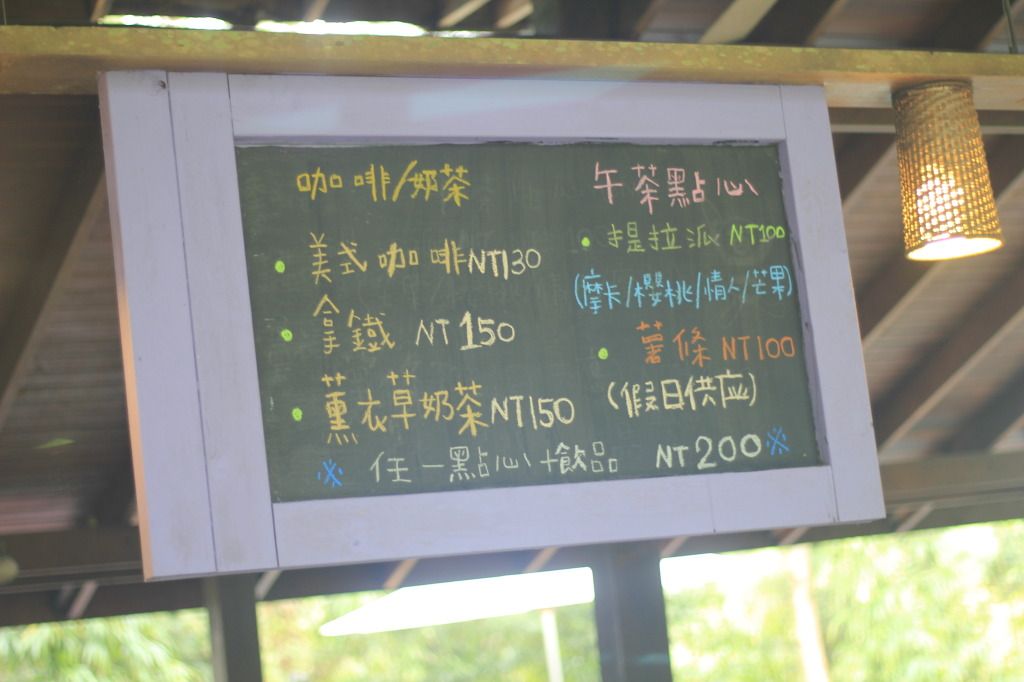 咖啡/奶茶
美式咖啡NT130
拿鐵 NT150
薰衣草奶茶NT150
午茶點心
提拉派 NT100
(摩卡/櫻桃/情人/芒果)
薯條 NT100
(假日供應)
※ 任一點心+飲品 NT200※